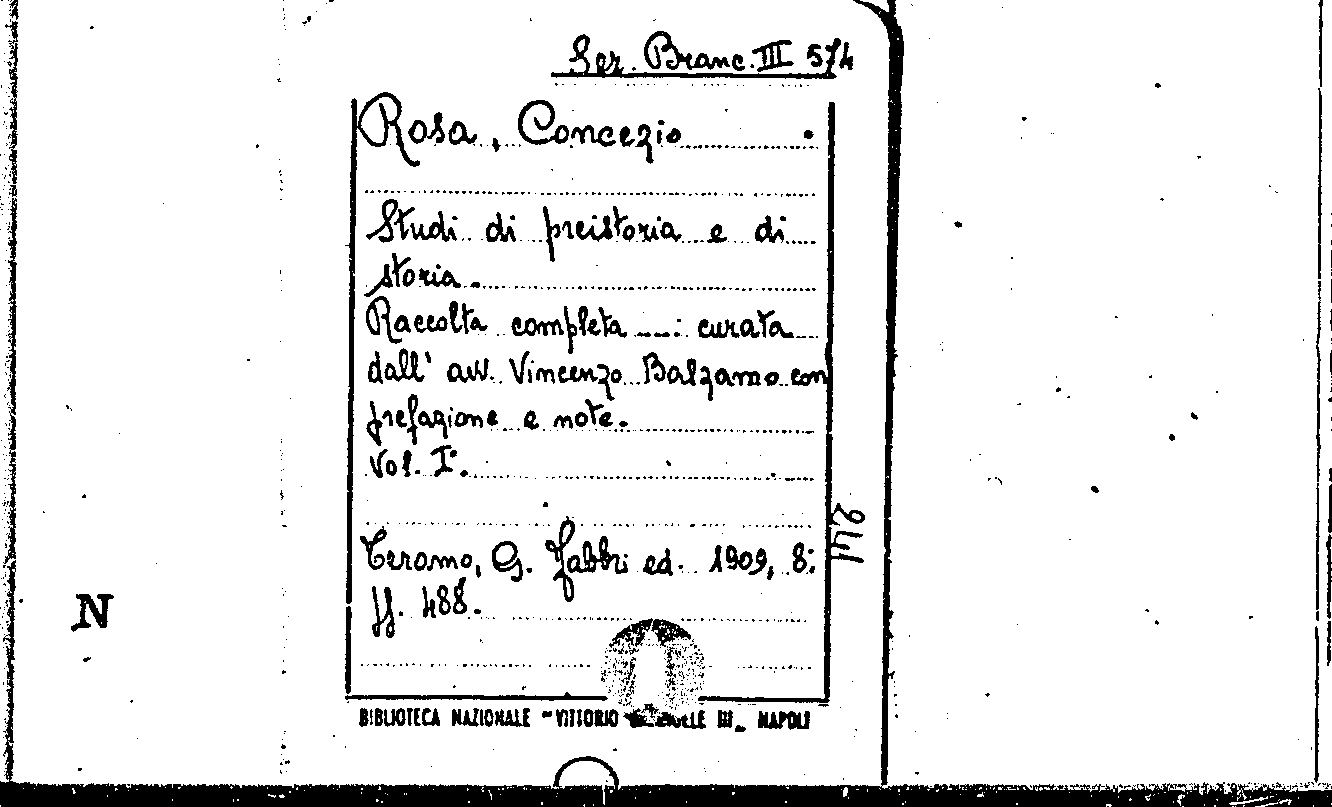 Ser. Branc. III 574
Rosa, Concezio
Studi di preistoria e di
storia.
Raccolta completa ....: curata
dall' avv. Vincenzo Balzano con
prefazione e note.
Vol. I°.
Teramo, G. Fabbri ed. 1909, 8:
ff. 488.
N
BIBLIOTECA NAZIONALE "VITTORIO III" NAPOLI